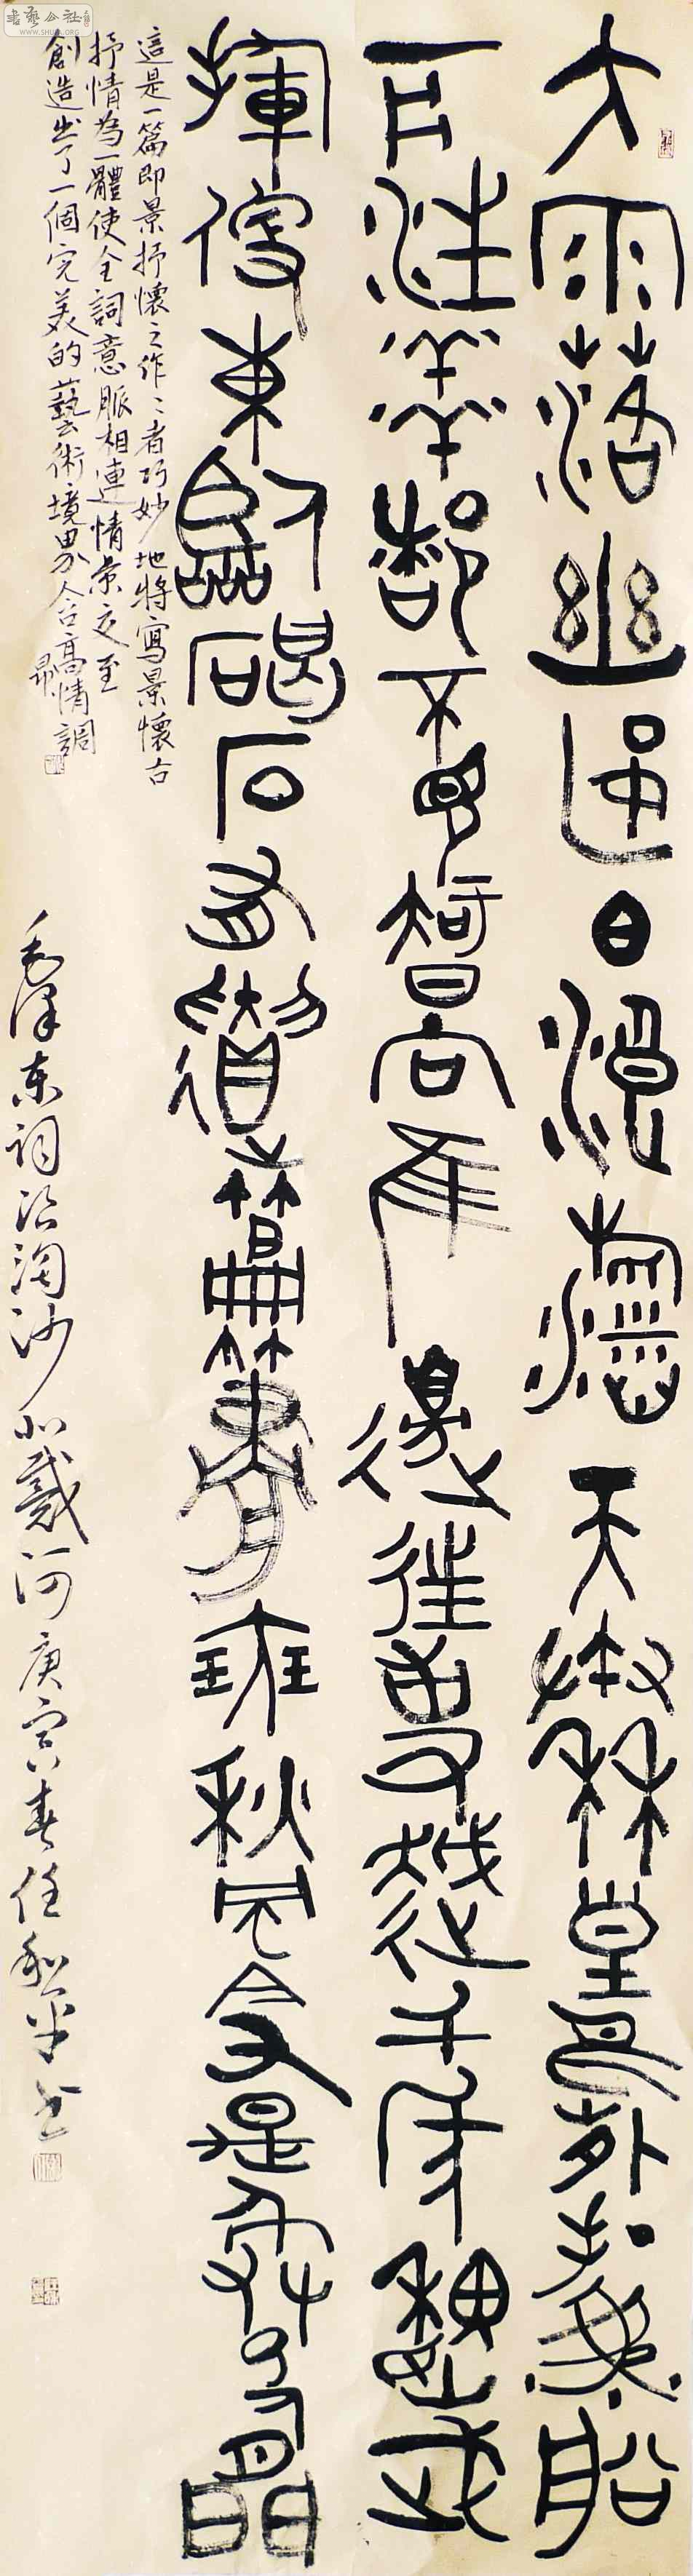 大雨落幽燕白浪滔天秦皇島外打魚船
一片汪洋都不見知向誰邊往事越千年魏武
揮鞭東臨碣石有遺篇蕭瑟秋風今又是換了人間
這是一篇即景抒懷之作〻者巧妙地將寫景懷古
抒情為一體使全詞意脈相連情景交至
創造出了一個完美的藝術境界含高情調昂
毛澤東詞浪淘沙北戴河庚寅春任和平书
書藝公社
WWW.SHUFA.ORG